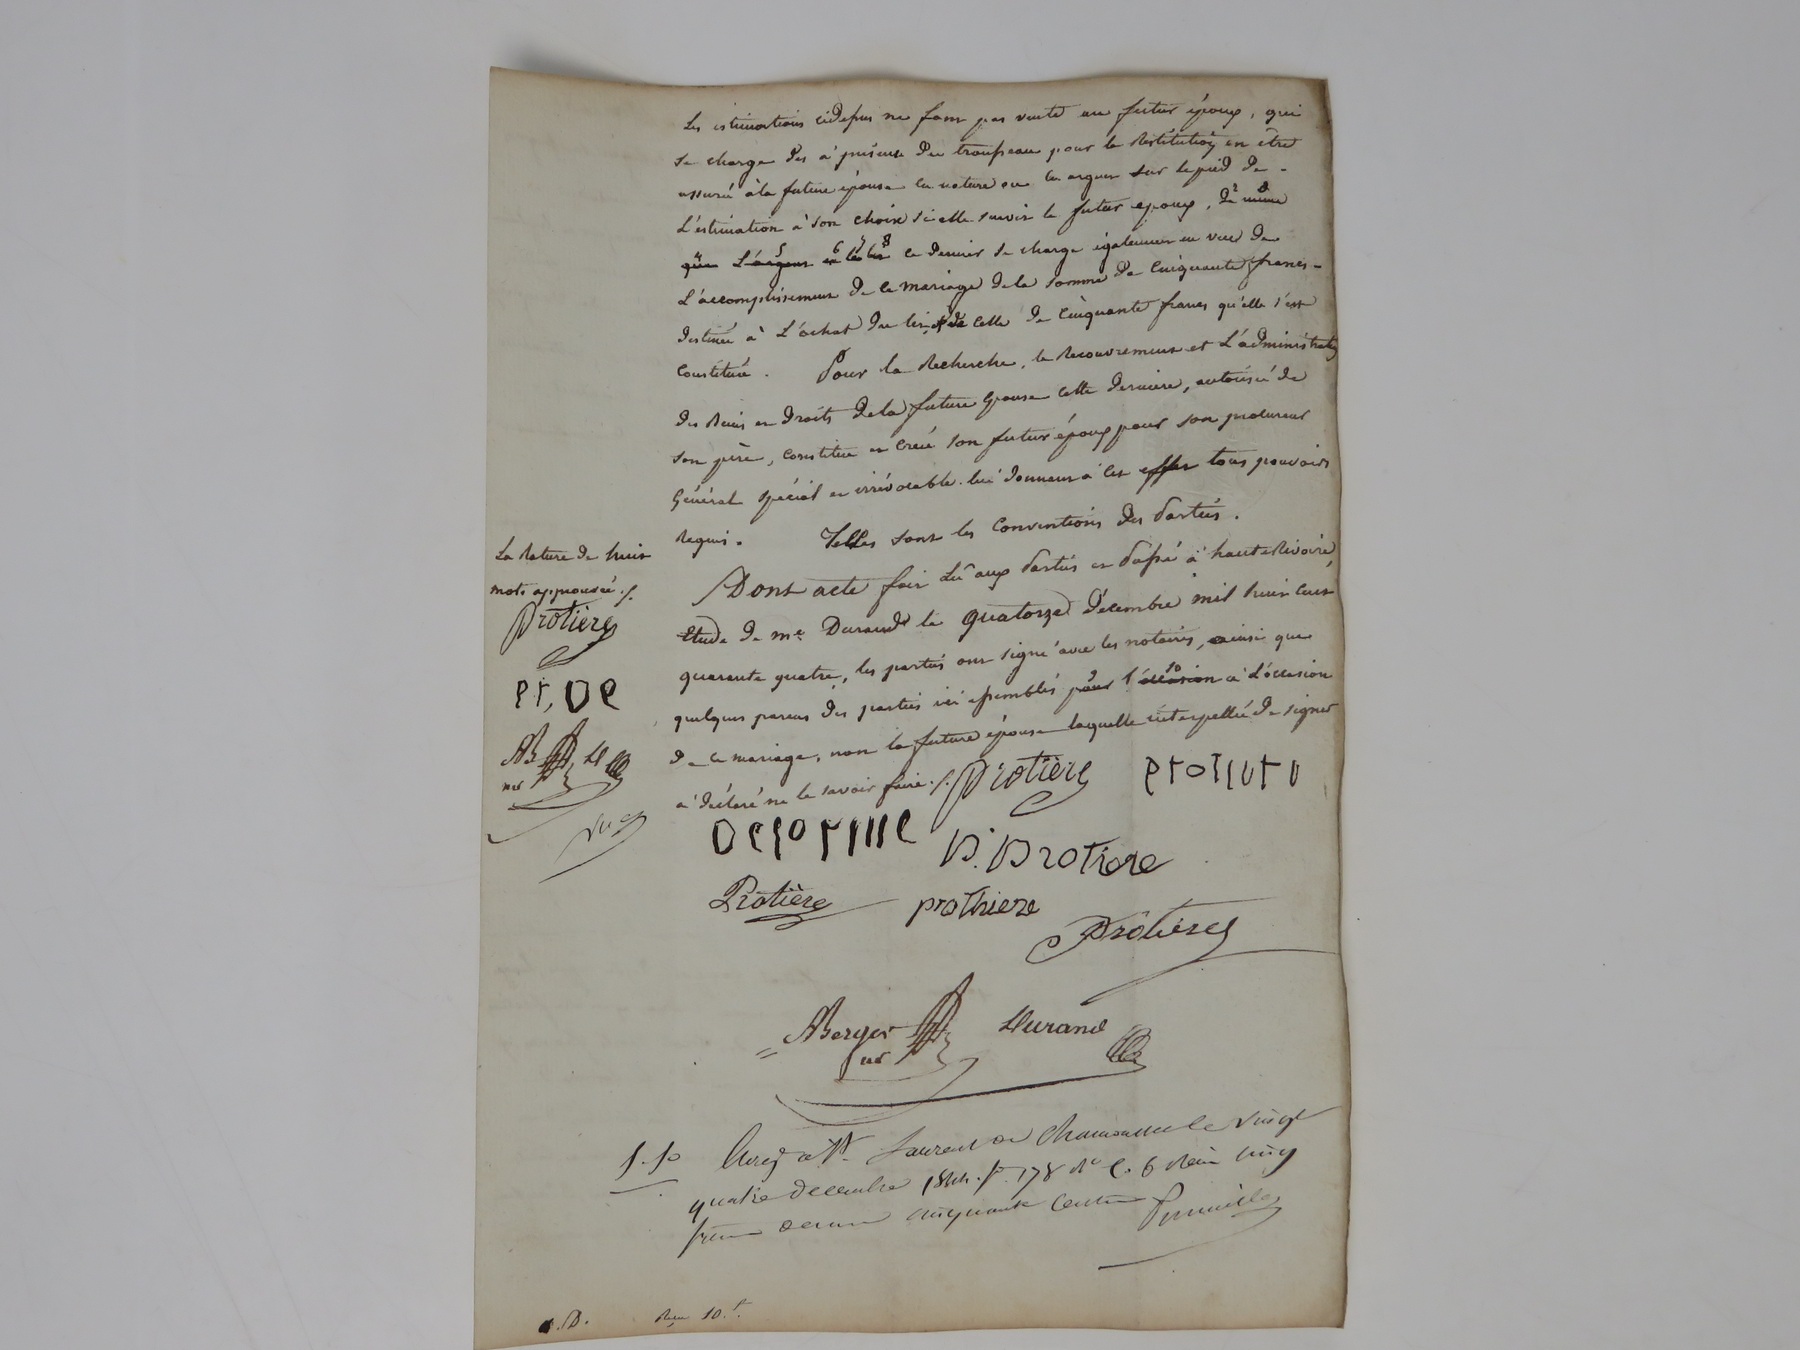 Les estimations cidessus ne font pas vente au futur époux, qui
se charge dès à présent du trousseau pour la Restitution en être
assurée à la future épouse en nature ou en argent sur le pied de
L'estimation à son choix si elle survit le futur époux, de même
que L'argent et les ce dernier se charge également en vue de
L'accomplissement de ce mariage de la somme de Cinquante francs
destinée à L'achat du lit, et de celle de Cinquante francs qu'elle s'est
Constituée. Pour la Recherche, le Recouvrement et L'administration
des Biens et Droits de la future Epouse cette dernière, autorisée de
son père, constitue et Créé son futur époux pour son procureur
Général spécial et irrévocable lui donnant à cet effet tous pouvoirs
Requis. Telles sont les Conventions des Parties.
Dont acte fait Lû aux Parties et Passé à haute Rivoire,
Etude de me. Durand le quatorze décembre mil huit cent
quarante quatre, les parties ont signé avec les notaires, ainsi que
quelques parens des parties ici assemblés pour l'occasion à L'occasion
de ce mariage, non la future épouse laquelle interpellée de signer
a déclaré ne le savoir faire ./.
La Rature de huit
mots approuvée ./.
Protière
Protière
Delorme
P. Protiere
Protière
prothiere
Protière
ABerger
Durand
quatre decembre 1844. fo. 178 Ro C. 6 Reçu cinq
francs cinquante Centimes
Reçu 10.f